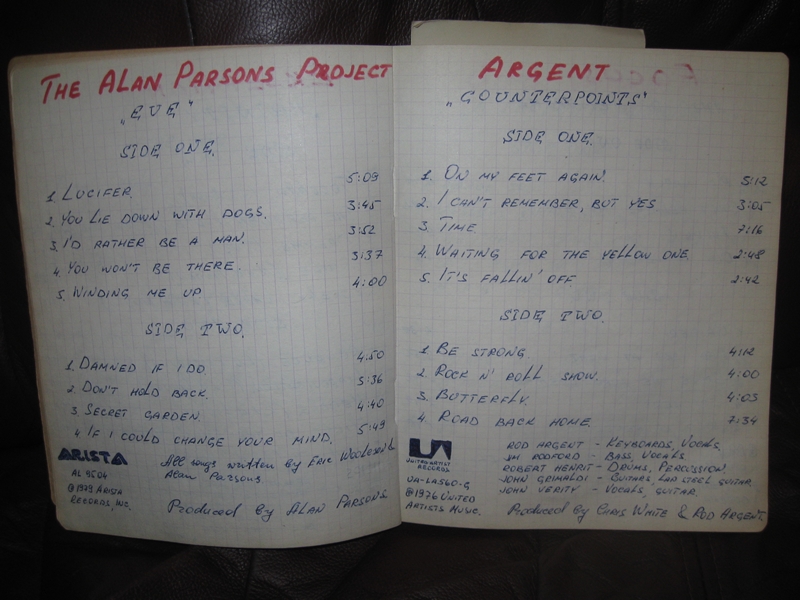 THE ALAN PARSONS PROJECT
„EVE"
SIDE ONE.
1. LUCIFER. 5:09
2. YOU LIE DOWN WITH DOGS. 3:45
3. I'D RATHER BE A MAN. 3:52
4. YOU WON'T BE THERE. 3:37
5. WINDING ME UP 4:00
SIDE TWO.
1. DAMNED IF I DO. 4:50
2. DON'T HOLD BACK. 5:36
3. SECRET GARDEN. 4:40
4. IF I COULD CHANGE YOUR MIND. 5:49
ARISTA
AL 9504
℗1979 ARISTA
RECORDS, INC.
All songs written by Eric Woolosen &
Alan Parsons.
Produced by ALAN PARSONS
ARGENT
„COUNTERPOINTS"
SIDE ONE.
1. ON MY FEET AGAIN. 5:12
2. I CAN'T REMEMBER, BUT YES 3:05
3. TIME 7:16
4. WAITING FOR THE YELLOW ONE. 2:48
5. IT'S FALLIN' OFF 2:42
SIDE TWO.
1. BE STRONG. 4:12
2. ROCK N' ROLL SHOW. 4:00
3. BUTTERFLY. 4:03
4. ROAD BACK HOME. 7:34
UA
UNITED ARTIST
RECORDS
UA-LA560-G
℗1976 UNITED
ARTISTS MUSIC.
ROD ARGENT - KEYBOARDS, VOCALS.
JIM RODFORD - BASS, VOCALS
ROBERT HENRIT - DRUMS, PERCUSSION.
JOHN GRIMALDI - GUITARS, LAP STEEL GUITAR
JOHN VERITY - VOCALS, GUITAR.
Produced by CHRIS WHITE & ROD ARGENT.